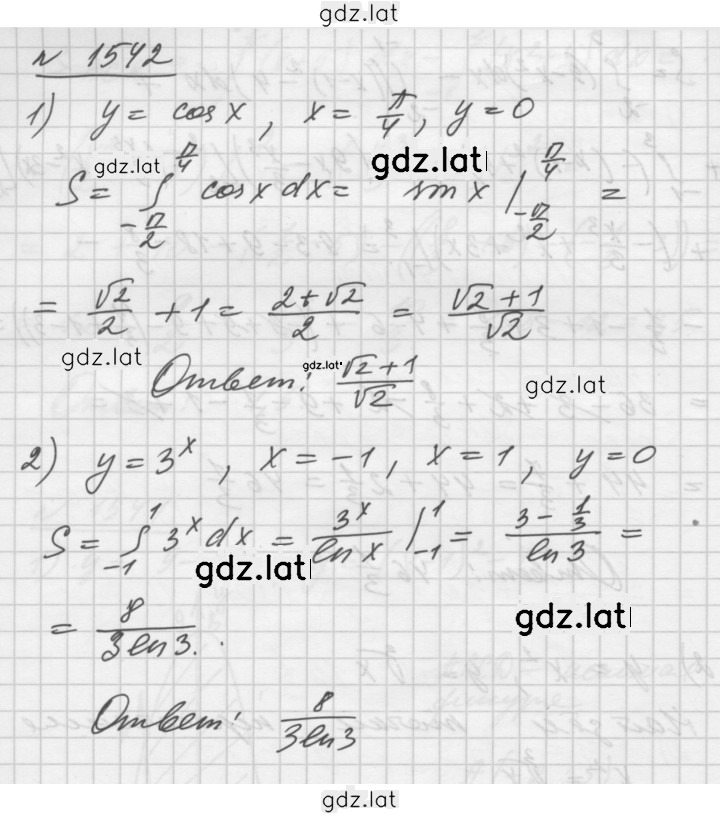 gdz.lat
№ 1542
1) y = cos x, x = π/4, y = 0
gdz.lat gdz.lat
S = ∫_{-π/2}^{π/4} cos x dx = sin x |_{-π/2}^{π/4} =
= √2/2 + 1 = (2+√2)/2 = (√2+1)/√2
gdz.lat gdz.lat gdz.lat
Ответ: (√2+1)/√2
2) y = 3^x, x = -1, x = 1, y = 0
S = ∫_{-1}^{1} 3^x dx = 3^x/ln x |_{-1}^{1} = (3 - 1/3)/ln 3 =
gdz.lat
gdz.lat
= 8/(3 ln 3).
Ответ: 8/(3 ln 3)
gdz.lat